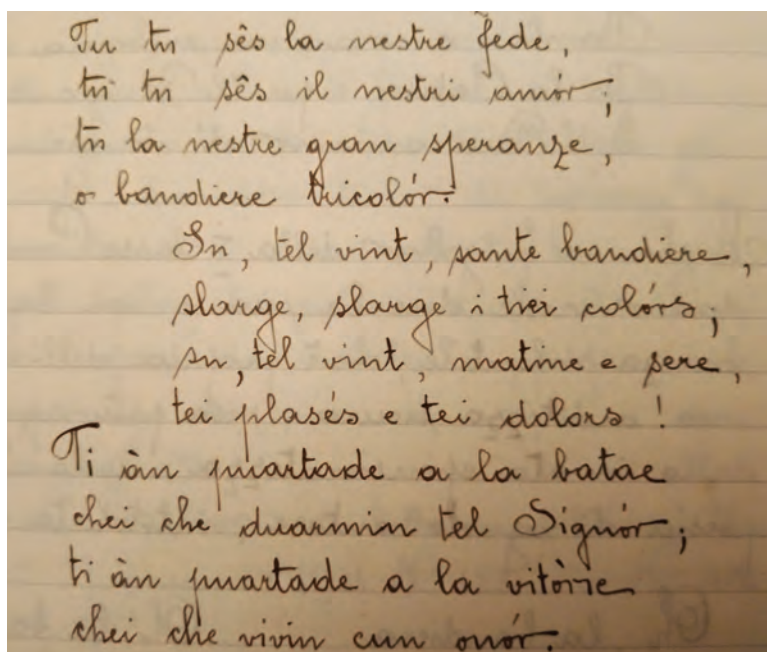 Tu tu sês la nestre fede,
tu tu sês il nestri amór;
tu la nestre gran speranze,
o bandiere tricolór.
Su, tel vint, sante bandiere,
slarge, slarge i tiei colórs;
su, tel vint, matine e sere,
tei plasés e tei dolors!
Ti àn puartade a la batae
chei che duarmin tel Signór;
ti àn puartade a la vitòrie
chei che vivin cun onór.